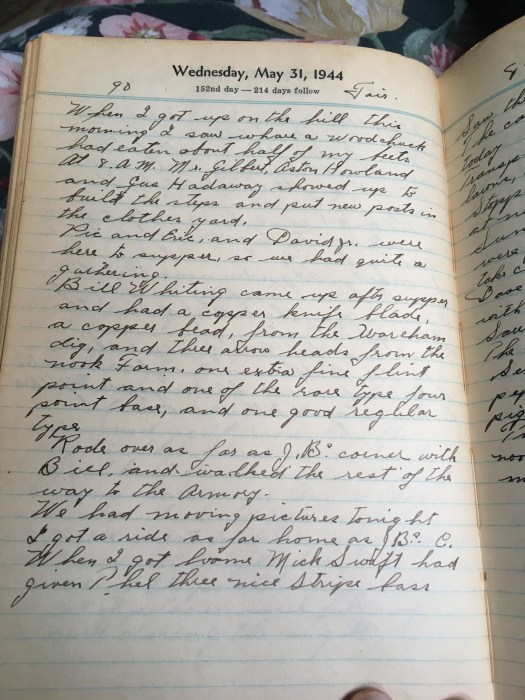 Wednesday, May 31, 1944
152nd day — 214 days follow
90 Fair.
When I got up on the hill this
morning I saw whare a woodchuck
had eaten about half of my beets
At 8. A.M. Mr. Gilbert, Aston Howland
and Gus Hadaway showed up to
build the steps and put new posts in
the clothes yard.
Pic and Eric, and David Jr. were
here to supper, so we had quite a
gathering.
Bill Whiting came up aftr supper
and had a copper knife blade,
a copper bead, from the Wareham
dig, and three arrow heads from the
nook Farm, one extra fine flint
point and one of the rare type four
point base, and one good regular
type
Rode over as far as J. B's corner with
Bill, and walked the rest of the
way to the Armory.
We had moving pictures tonight
I got a ride as far home as J B's C.
When I got home Mick Swift had
given Phel three nice Stripe bass
Saw
The
today
at
were
Dave
with
Saw
The